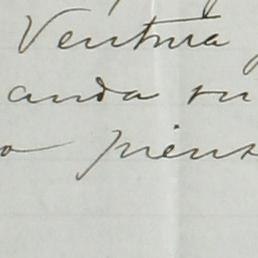 Ventura
anda su
o piens